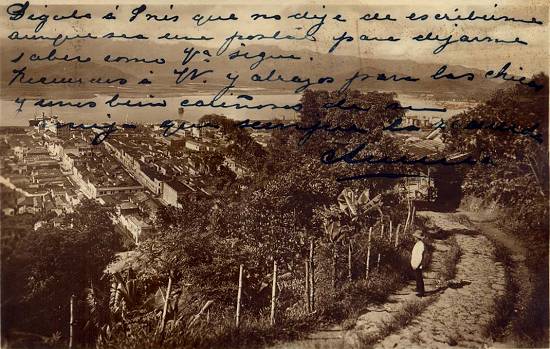 Digale á Inés que no deje de escribirme
aunque sea un postal para dejarme
saber como sigue.
Recuerdos á W. y abrazos para las chicas
y unos bien cariñosos de su
hija que siempre la recuerda